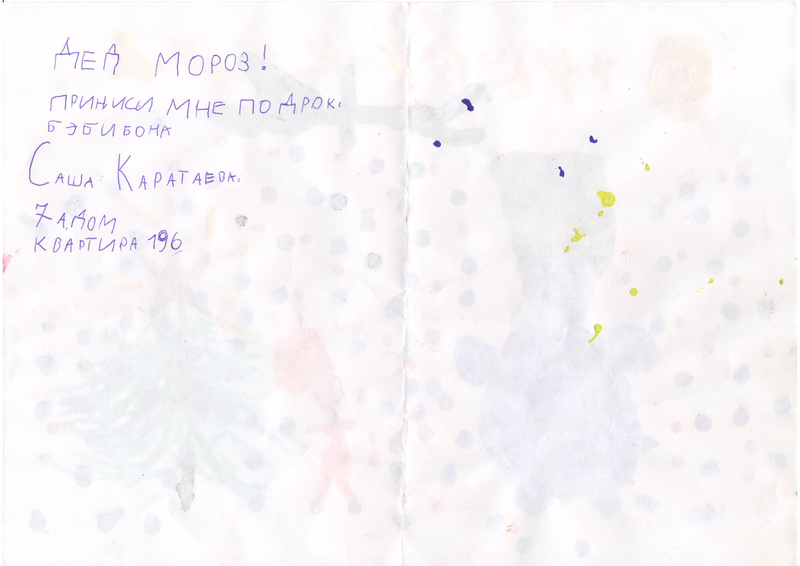 ДЕД МОРОЗ!
ПРИНИСИ МНЕ ПОДРОК.
БЭБИБОНА
САША КАРАТАЕВА.
7 А, ДОМ
КВАРТИРА 196